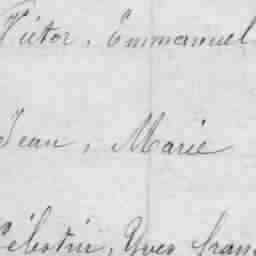 Victor, Emmanuel
Jean, Marie
Célestin, Yves fran